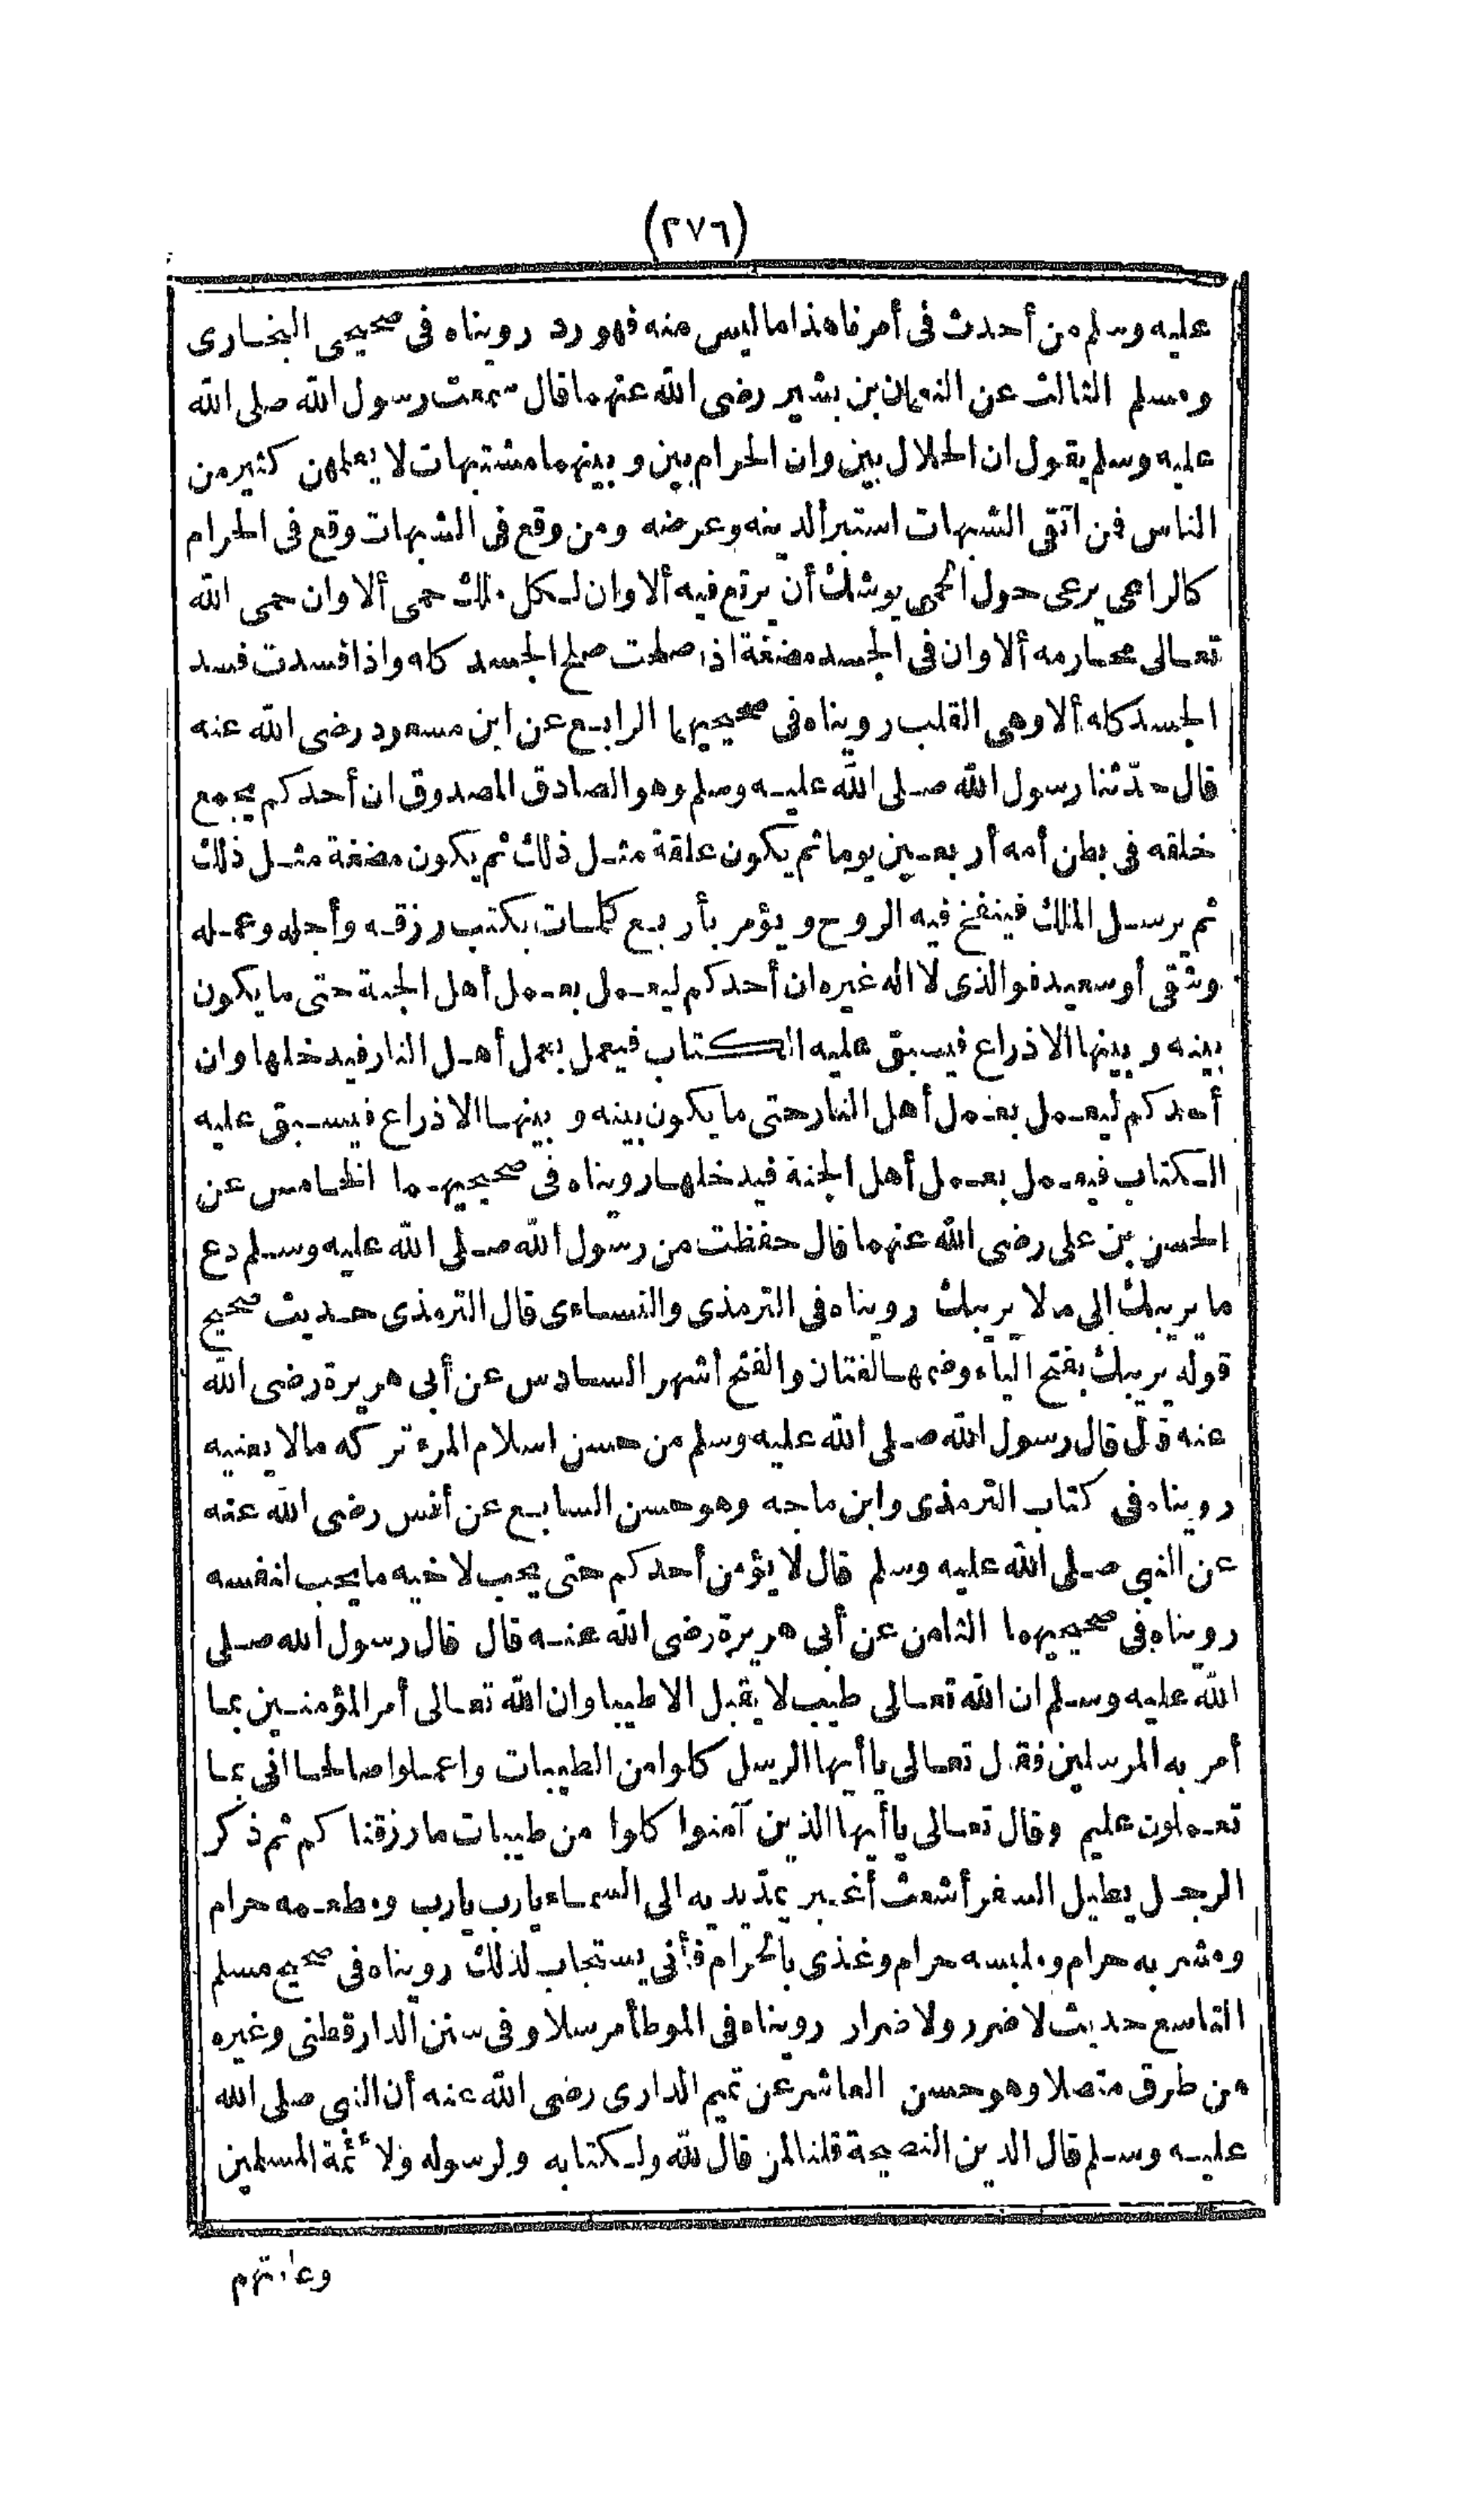 (٢٧٦)
عليه وسلم من أحدث فى أمرنا هذا ما ليس منه فهو رد رويناه فى صحيحى البخارى
ومسلم الثالث عن النعمان بن بشير رضى الله عنهما قال سمعت رسول الله صلى الله
عليه وسلم يقول ان الحلال بين وان الحرام بين وبينهما مشتبهات لا يعلمهن كثير من
الناس فمن اتقى الشبهات استبرأ لدينه وعرضه ومن وقع فى الشبهات وقع فى الحرام
كالراعى يرعى حول الحمى يوشك أن يرتع فيه ألا وان لكل ملك حمى ألا وان حمى الله
تعالى محارمه ألا وان فى الجسد مضغة اذا صلحت صلح الجسد كله واذا فسدت فسد
الجسد كله ألا وهى القلب رويناه فى صحيحيهما الرابع عن ابن مسعود رضى الله عنه
قال حدّثنا رسول الله صلى الله عليه وسلم وهو الصادق المصدوق ان أحدكم يجمع
خلقه فى بطن أمه أربعين يوما ثم يكون علقة مثل ذلك ثم يكون مضغة مثل ذلك
ثم يرسل الملك فينفخ فيه الروح ويؤمر بأربع كلمات بكتب رزقه وأجله وعمله
وشقى أو سعيد فوالذى لا اله غيره ان أحدكم ليعمل بعمل أهل الجنة حتى ما يكون
بينه وبينها الا ذراع فيسبق عليه الكتاب فيعمل بعمل أهل النار فيدخلها وان
أحدكم ليعمل بعمل أهل النار حتى ما يكون بينه وبينها الا ذراع فيسبق عليه
الكتاب فيعمل بعمل أهل الجنة فيدخلها رويناه فى صحيحيهما الخامس عن
الحسن بن على رضى الله عنهما قال حفظت من رسول الله صلى الله عليه وسلم دع
ما يريبك الى ما لا يريبك رويناه فى الترمذى والنساءى قال الترمذى حديث صحيح
قوله يريبك بفتح الياء وضمها لغتان والفتح أشهر السادس عن أبى هريرة رضى الله
عنه قال قال رسول الله صلى الله عليه وسلم من حسن اسلام المرء تركه مالا يعنيه
رويناه فى كتاب الترمذى وابن ماجه وهو حسن السابع عن أنس رضى الله عنه
عن النبى صلى الله عليه وسلم قال لا يؤمن أحدكم حتى يحب لاخيه ما يحب لنفسه
رويناه فى صحيحيهما الثامن عن أبى هريرة رضى الله عنه قال قال رسول الله صلى
الله عليه وسلم ان الله تعالى طيب لا يقبل الا طيبا وان الله تعالى أمر المؤمنين بما
أمر به المرسلين فقال تعالى يا أيها الرسل كلوا من الطيبات واعملوا صالحا انى بما
تعملون عليم وقال تعالى يا أيها الذين آمنوا كلوا من طيبات ما رزقناكم ثم ذكر
الرجل يطيل السفر أشعث أغبر يمدّ يديه الى السماء يارب يارب ومطعمه حرام
ومشربه حرام وملبسه حرام وغذى بالحرام فأنى يستجاب لذلك رويناه فى صحيح مسلم
التاسع حديث لا ضرر ولا ضرار رويناه فى الموطأ مرسلا وفى سنن الدارقطنى وغيره
من طرق متصلا وهو حسن العاشر عن تميم الدارى رضى الله عنه أن النبى صلى الله
عليه وسلم قال الدين النصيحة قلنا لمن قال لله ولكتابه ولرسوله ولأئمة المسلمين
وعامتهم